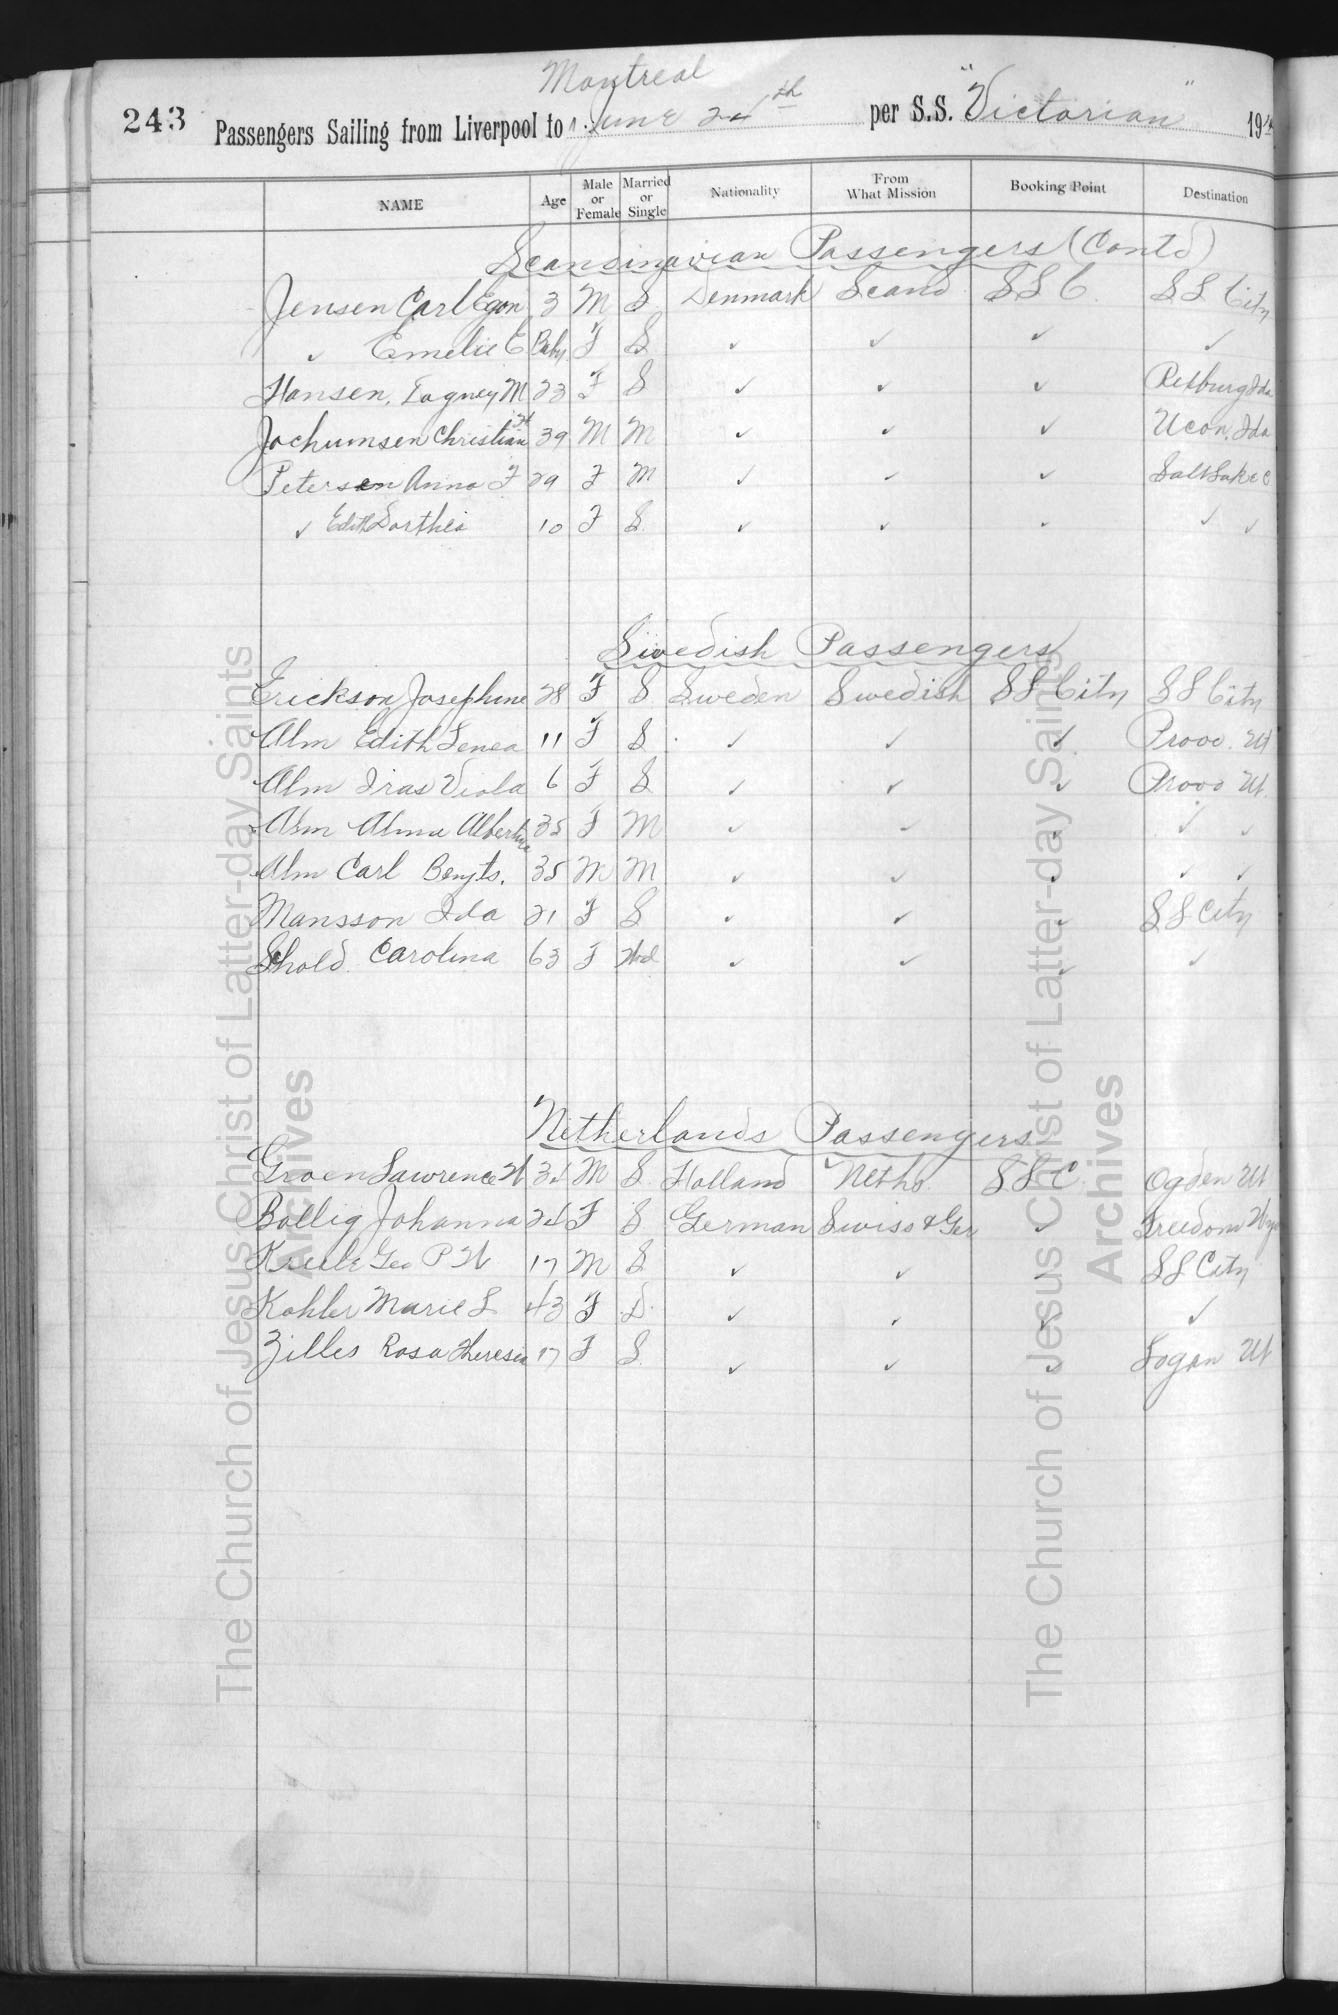 243
Montreal
Passengers Sailing from Liverpool to June 24th per S.S. "Victorian" 19
NAME Age Male or Female Married or Single Nationality From What Mission Booking Point Destination
Scandinavian Passengers (Contd)
Jensen Carl Egon 3 M S Denmark Scand S L C. S L City
✓ Emelie E Baby F S ✓ ✓ ✓ ✓
Hansen, Dagney M 23 F S ✓ ✓ ✓ Rexburg Ida
Jochumsen Christian 39 M M ✓ ✓ ✓ Ucon, Ida
Petersen Anna F 29 F M ✓ ✓ ✓ Salt Lake C
✓ Edith Dorthea 10 F S ✓ ✓ ✓ ✓ ✓
Swedish Passengers
Erickson Josephine 28 F S Sweden Swedish S L City S L City
Alm Edith Lenea 11 F S ✓ ✓ ✓ Provo. Ut
Alm Iras Viola 6 F S ✓ ✓ ✓ Provo Ut.
Alm Alma Albertina 35 F M ✓ ✓ ✓ ✓ ✓
Alm Carl Bengts. 35 M M ✓ ✓ ✓ ✓ ✓
Mansson Ida 21 F S ✓ ✓ ✓ S L City
Carolina 63 F Wd ✓ ✓ ✓ ✓
Netherlands Passengers
Groen Lawrence W 34 M S. Holland Neths. S L C. Ogden Ut
Bollig Johanna 24 F S German Swiss & Ger ✓ Freedom Wyo
Geo P W 17 M S ✓ ✓ ✓ S L City
Kohler Marie L 43 F ✓ ✓ ✓ ✓
Zilles Rosa Theresia 17 F S. ✓ ✓ ✓ Logan Ut
The Church of Jesus Christ of Latter-day Saints
Archives
The Church of Jesus Christ of Latter-day Saints
Archives